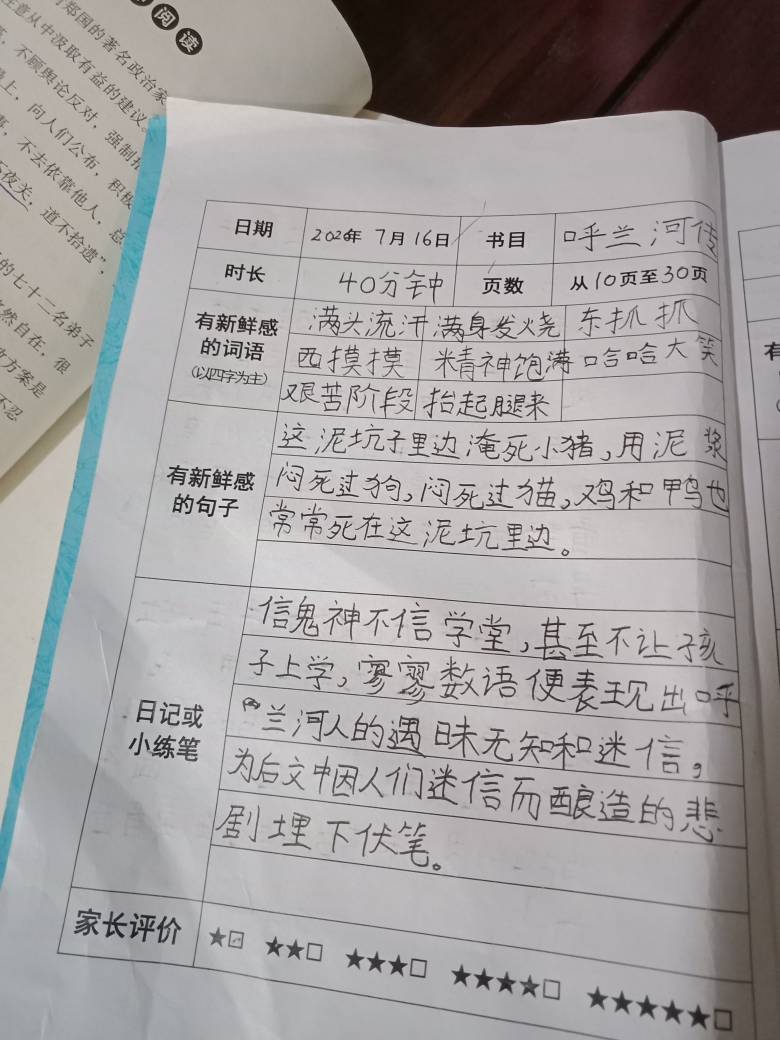 阅读
郑国的著名政治家
注意从中汲取有益的建议。
不顾舆论反对，强制
上，向人们公布，积极
事，不去依靠他人，总
不夜关，道不拾遗”，
的七十二名弟子
然自在，很
方案是
不忍
日期 2026年 7月16日 书目 呼兰河传
时长 40分钟 页数 从10页至30页
有新鲜感的词语（以四字为主）
满头流汗 满身发烧 东抓抓
西摸摸 精神饱满 哈哈大笑
艰苦阶段 抬起腿来
有新鲜感的句子
这泥坑子里边淹死小猪，用泥浆
闷死过狗，闷死过猫，鸡和鸭也
常常死在这泥坑里边。
日记或小练笔
信鬼神不信学堂，甚至不让孩
子上学，寥寥数语便表现出呼
兰河人的遇昧无知和迷信，
为后文中因人们迷信而酿造的悲
剧埋下伏笔。
家长评价 ★☑ ★★□ ★★★□ ★★★★□ ★★★★★□